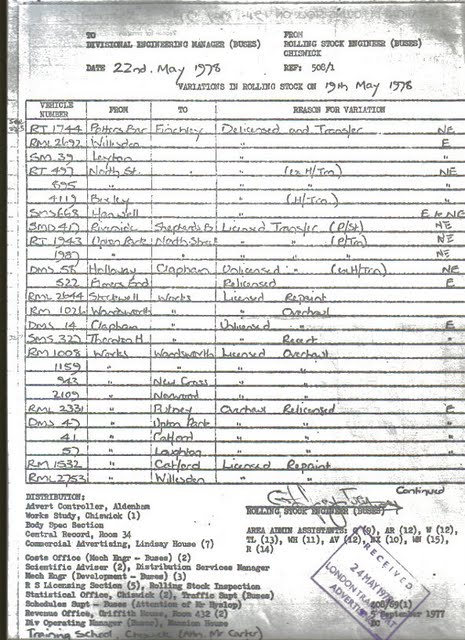 TO FROM
DIVISIONAL ENGINEERING MANAGER (BUSES) ROLLING STOCK ENGINEER (BUSES)
CHISWICK
DATE 22nd. May 1978 REF: 508/1
VARIATIONS IN ROLLING STOCK ON 19th May 1978
VEHICLE NUMBER FROM TO REASON FOR VARIATION
RT 1744 Potters Bar Finchley Delicensed and Transfer NE
RML 2692 Willesden " " " E
SM 39 Leyton " " "
RT 497 North St. " " (ex H/Trn) NE
895 " " " "
4119 Bexley " " (H/Trn) "
SMS 668 Hanwell " " " E to NE
SMD 417 Riverside Shepherds B Licensed Transfer (P/St) NE
RT 1943 Upton Park North Street " " (P/Trn) NE
1987 " " " " " NE
DMS 58 Holloway Clapham Unlicensed " (ex H/Trn) NE
522 Elmers End Relicensed E
RML 2644 Stockwell Works Licensed Repaint
RM 1026 Wandsworth " " Overhaul
DMS 14 Clapham " Unlicensed " E
SMS 327 Thornton H " " Recert "
RM 1008 Works Wandsworth Licensed Overhaul
1159 " " " "
943 " New Cross " "
2109 " Norwood " "
RML 2331 " Putney Overhaul Relicensed E
DMS 47 " Upton Park " " "
41 " Catford " " "
57 " Loughton " " "
RM 1532 " Catford Licensed Repaint
RML 2753 " Willesden " "
Continued
DISTRIBUTION: ROLLING STOCK ENGINEER (BUSES)
Advert Controller, Aldenham
Works Study, Chiswick (1)
Body Spec Section
Central Record, Room 34
Commercial Advertising, Lindsay House (7)
AREA ADMIN ASSISTANTS: (9), AR (12), W (12),
TL (13), WH (11), AV (12), BX (10), WN (15),
R (14)
Costs Office (Mech Engr - Buses) (2)
Scientific Adviser (2), Distribution Services Manager
Mech Engr (Development) (3)
R S Licensing Section (5), Rolling Stock Inspection
Statistical Office, Chiswick (2), Traffic Supt (Buses)
Schedules Supt - Buses (Attention of Mr Hyslop)
Revenue Office, Griffith House, Room 432 (2)
Div Operating Manager (Buses), Mansion House
Training School, Chiswick (Attn. Mr Carter)
RECEIVED
24 MAY 1978
LONDON TRANSPORT
ADVERTISING
508/69(1)
5 September 1977